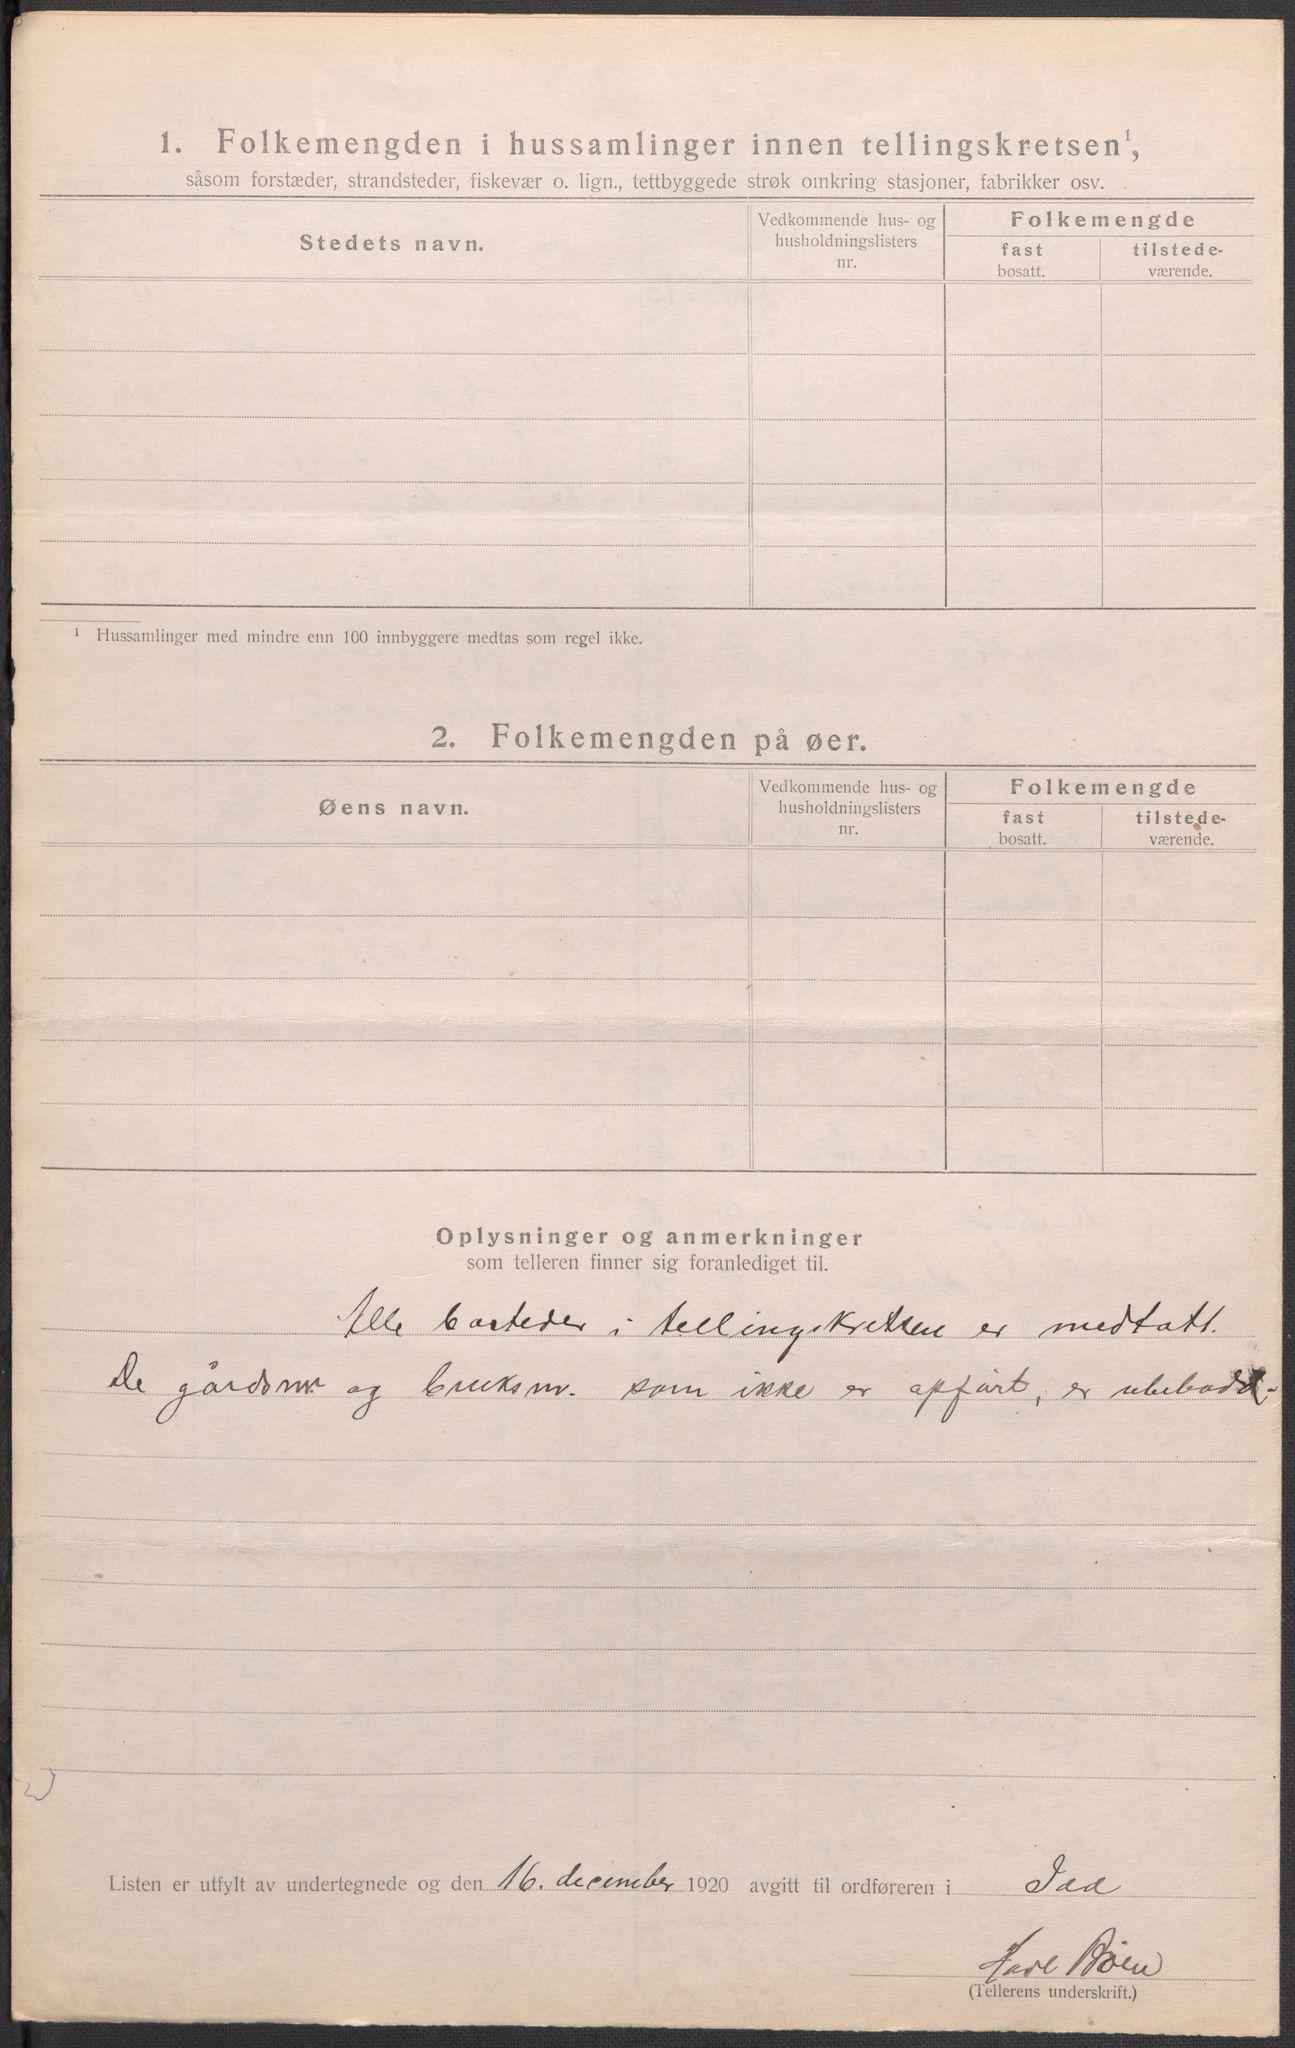 1. Folkemengden i hussamlinger innen tellingskretsen¹,
såsom forstæder, strandsteder, fiskevær o. lign., tettbyggede strøk omkring stasjoner, fabrikker osv.
Stedets navn.
Vedkommende hus- og
husholdningslisters
nr.
Folkemengde
fast
bosatt.
tilstede-
værende.
¹ Hussamlinger med mindre enn 100 innbyggere medtas som regel ikke.
2. Folkemengden på øer.
Øens navn.
Vedkommende hus- og
husholdningslisters
nr.
Folkemengde
fast
bosatt.
tilstede-
værende.
Oplysninger og anmerkninger
som telleren finner sig foranlediget til.
Alle bosteder i tellingskretsen er medtatt.
De gårdsnr og bruksnr. som ikke er opført, er ubebodd.
Listen er utfylt av undertegnede og den 16. december 1920 avgitt til ordføreren i Idd
Bøen
(Tellerens underskrift.)